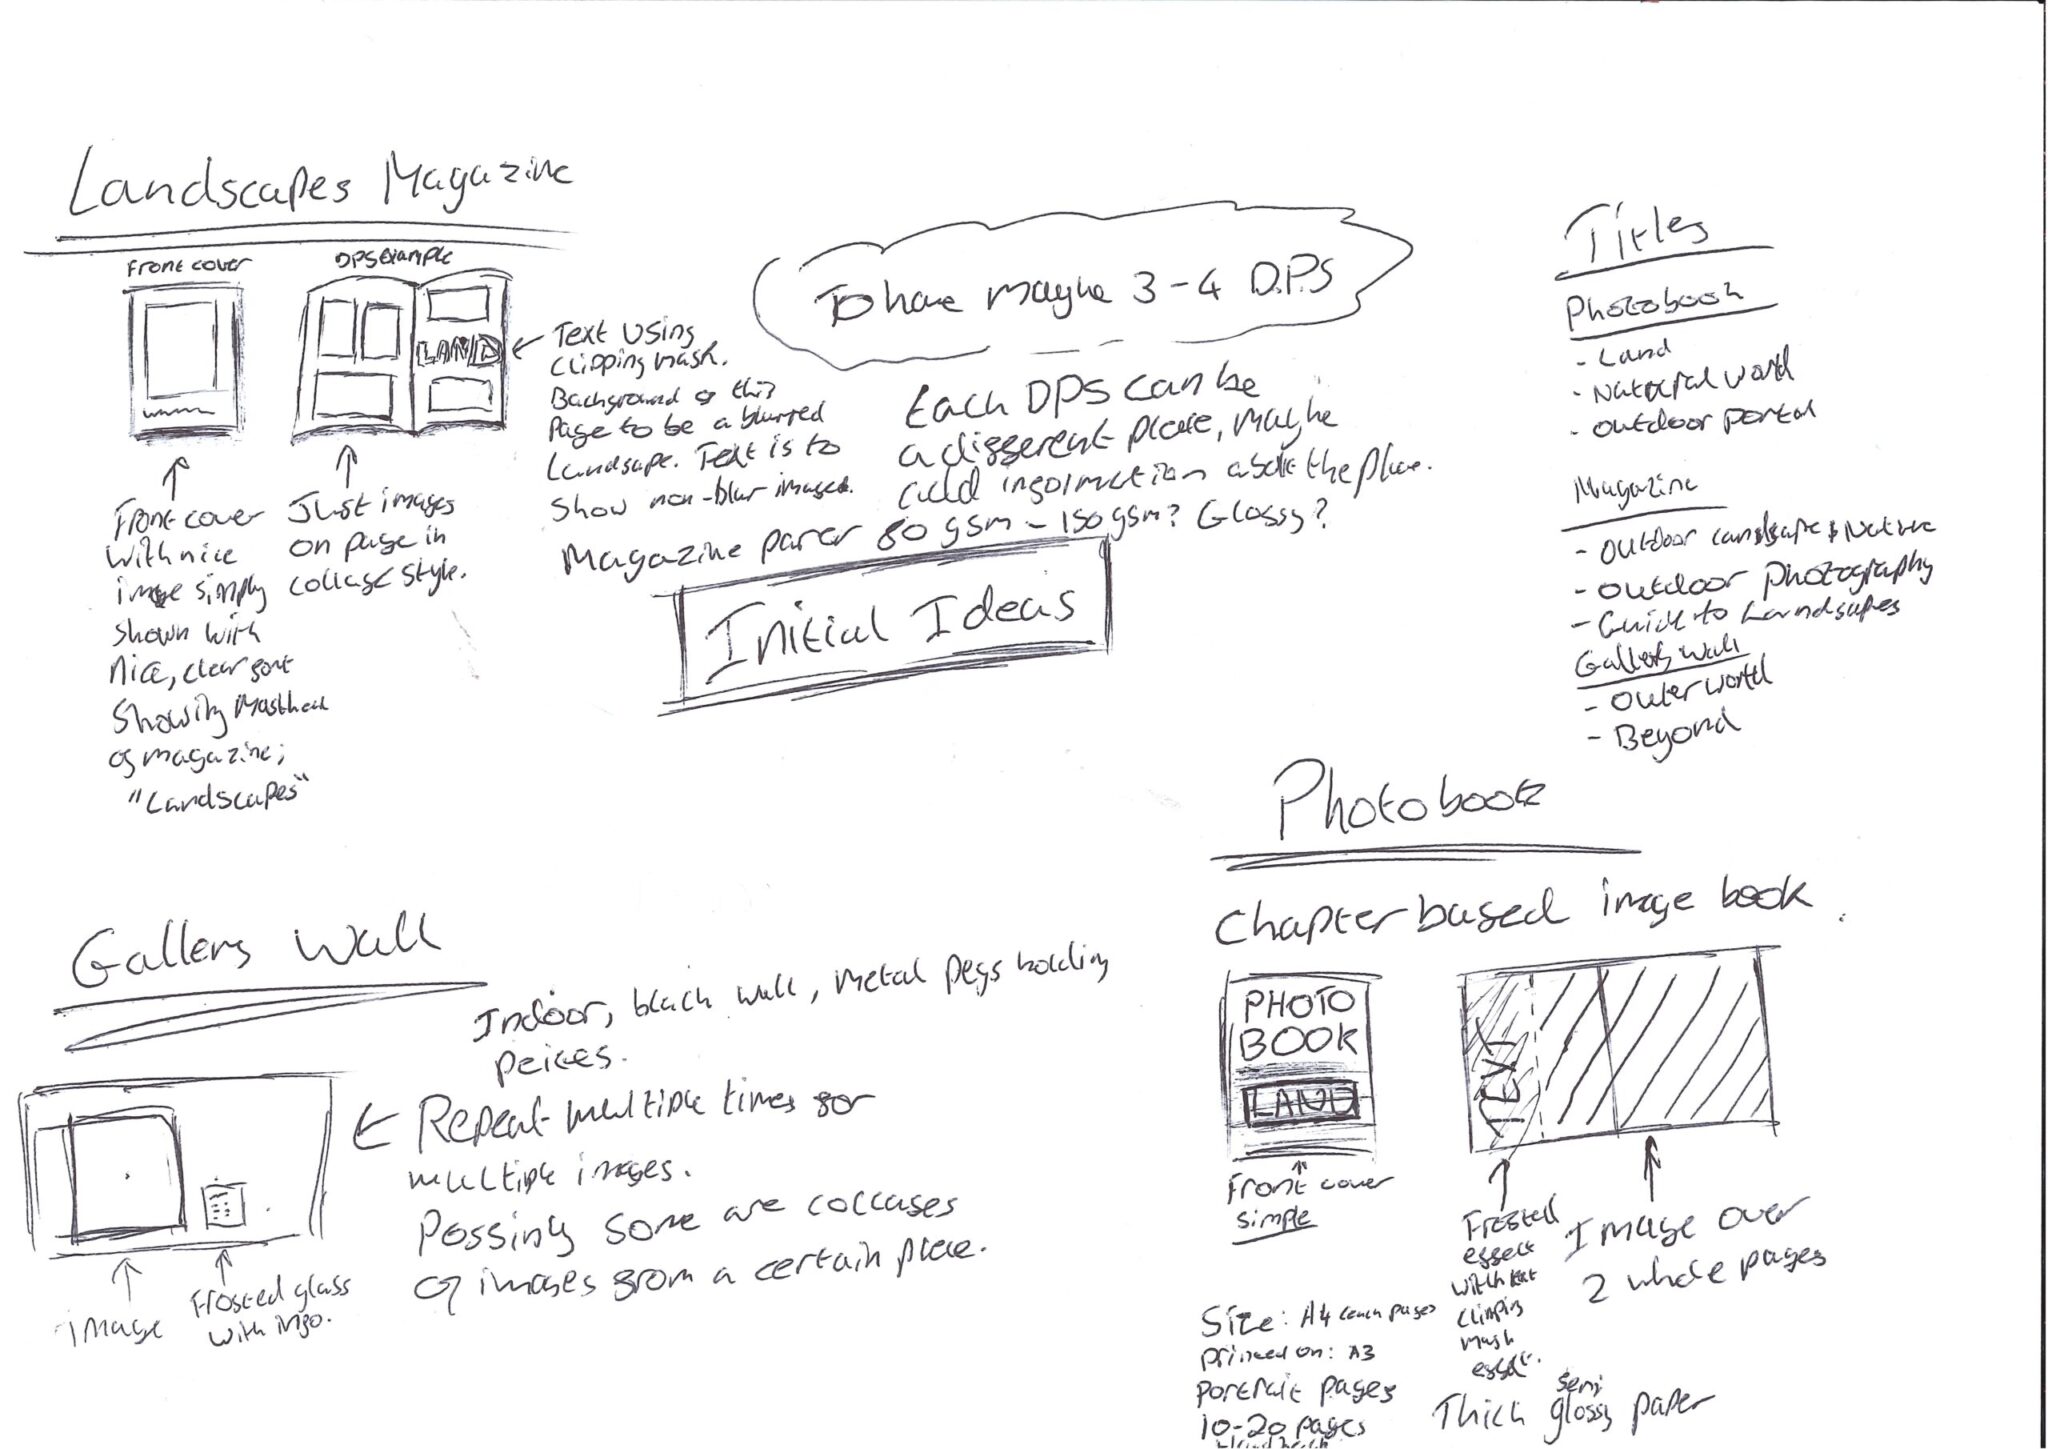 Landscapes Magazine
Front cover
DPS Example
LAND
Text using
clipping mask.
Background of this
Page to be a blurred
Landscape. Text is to
Show non-blur images.
Front cover
with nice
image simply
shown with
nice, clear font
Showing Masthead
of magazine;
"Landscapes"
Just images
on page in
collage style.
To have maybe 3-4 D.P.S
Each DPS can be
a different place, maybe
add information about the place.
Magazine paper 80gsm - 150gsm? Glossy?
Initial Ideas
Titles
Photobook
- Land
- Natural world
- Outdoor portal
Magazine
- Outdoor Landscape & Nature
- Outdoor Photography
- Guide to Landscapes
Gallery Wall
- Outer world
- Beyond
Gallery Wall
Indoor, black wall, metal pegs holding
peices.
Repeat multiple times for
multiple images.
Possinly some are collages
of images from a certain place.
image
Frosted glass
with info.
Photobook
Chapter based image book
PHOTO
BOOK
LAND
Front cover
simple
TEXT
Frosted
effect
with text
clipping
mask
effect.
Image over
2 whole pages
Size: A4 (each page)
printed on: A3
portrait pages
10-20 pages
Thick semi glossy paper